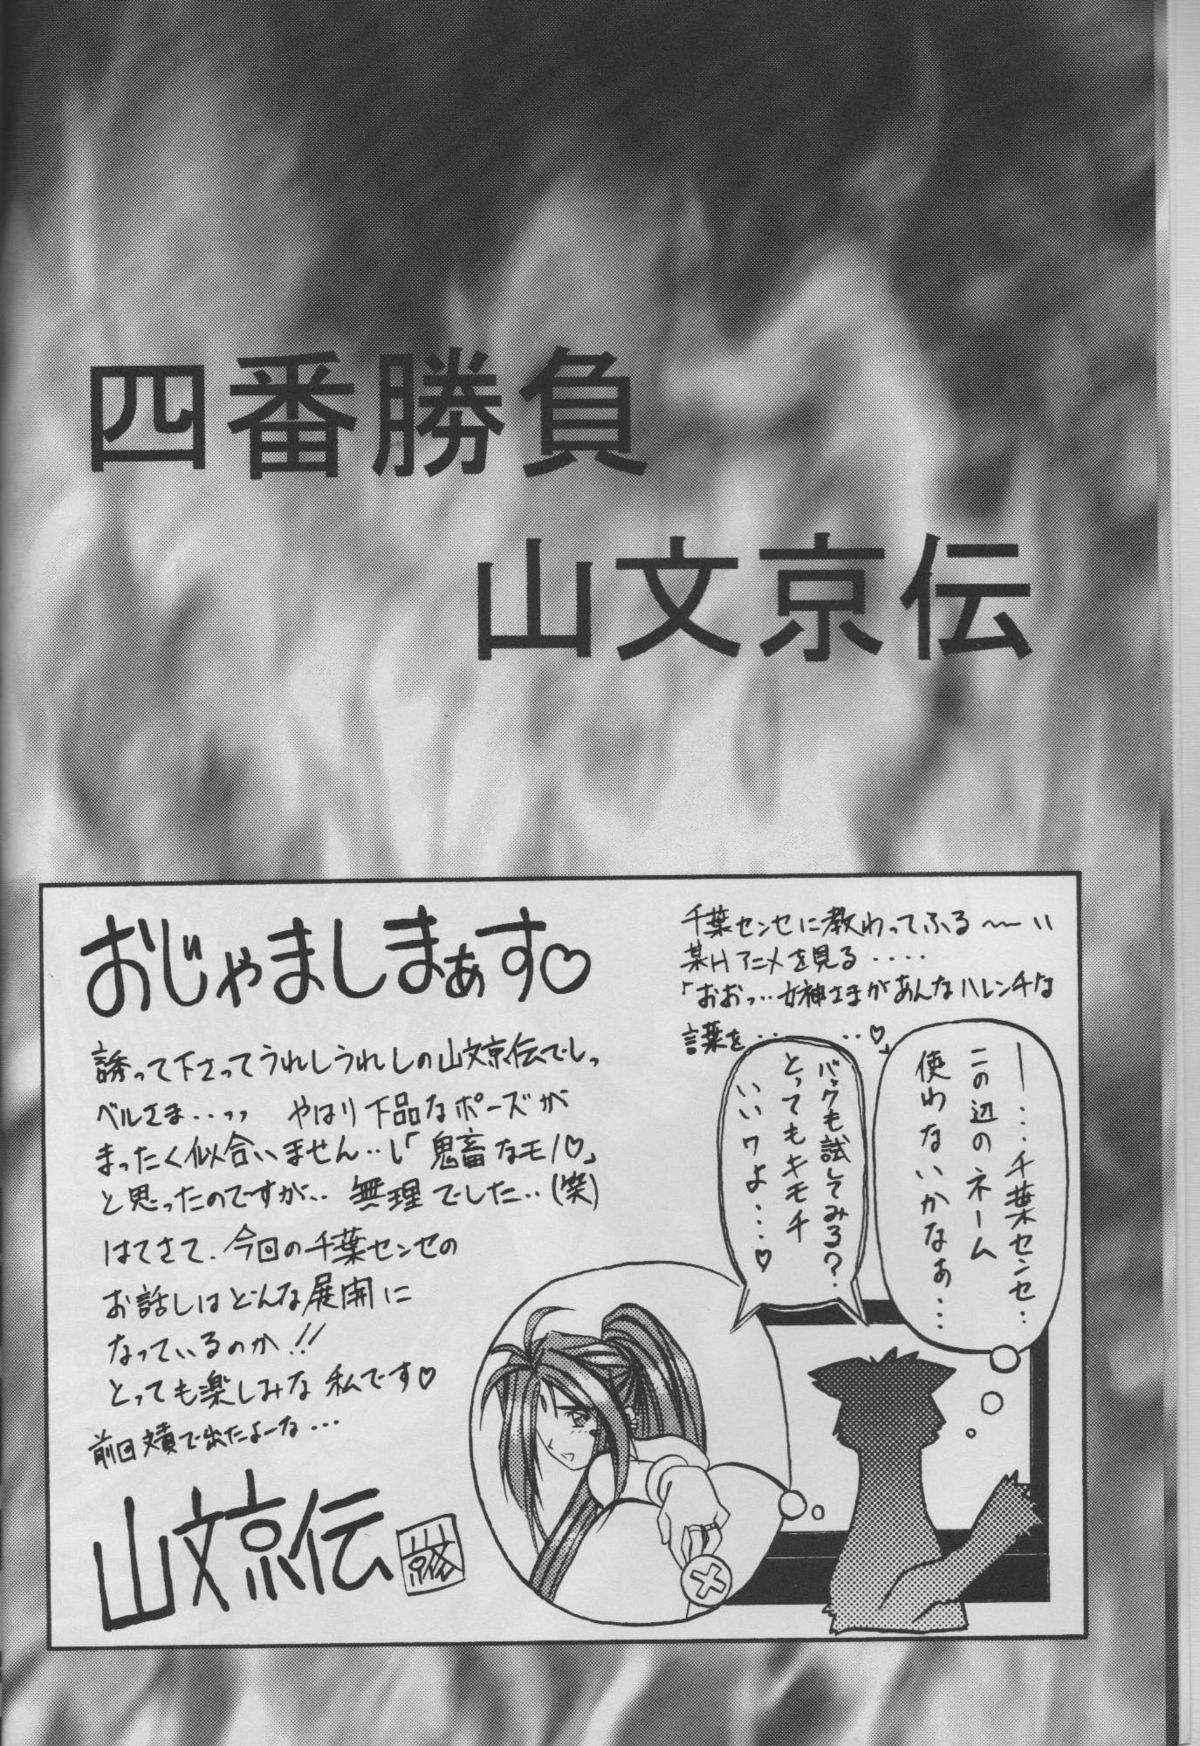 四番勝負
山文京伝
おじゃましまぁす♡
誘って下さってうれしうれしの山文京伝でしっ
ベルさま‥ッッ やはり下品なポーズが
まったく似合いません‥し「鬼畜なモノ♡」
と思ったのですが‥ 無理でした‥(笑)
はてさて、今回の千葉センセの
お話しはどんな展開に
なっているのか!!
とっても楽しみな私です♡
前回
で出たよーな…
山文京伝
千葉センセに教わってふる〜〜い
某Hアニメを見る‥‥
「おおっ…女神さまがあんなハレンチな
言葉を‥‥‥♡」
ー‥‥千葉センセ‥
この辺のネーム
使わないかなぁ…
バックも試してみる?‥
とってもキモチ
いいワよ…♡